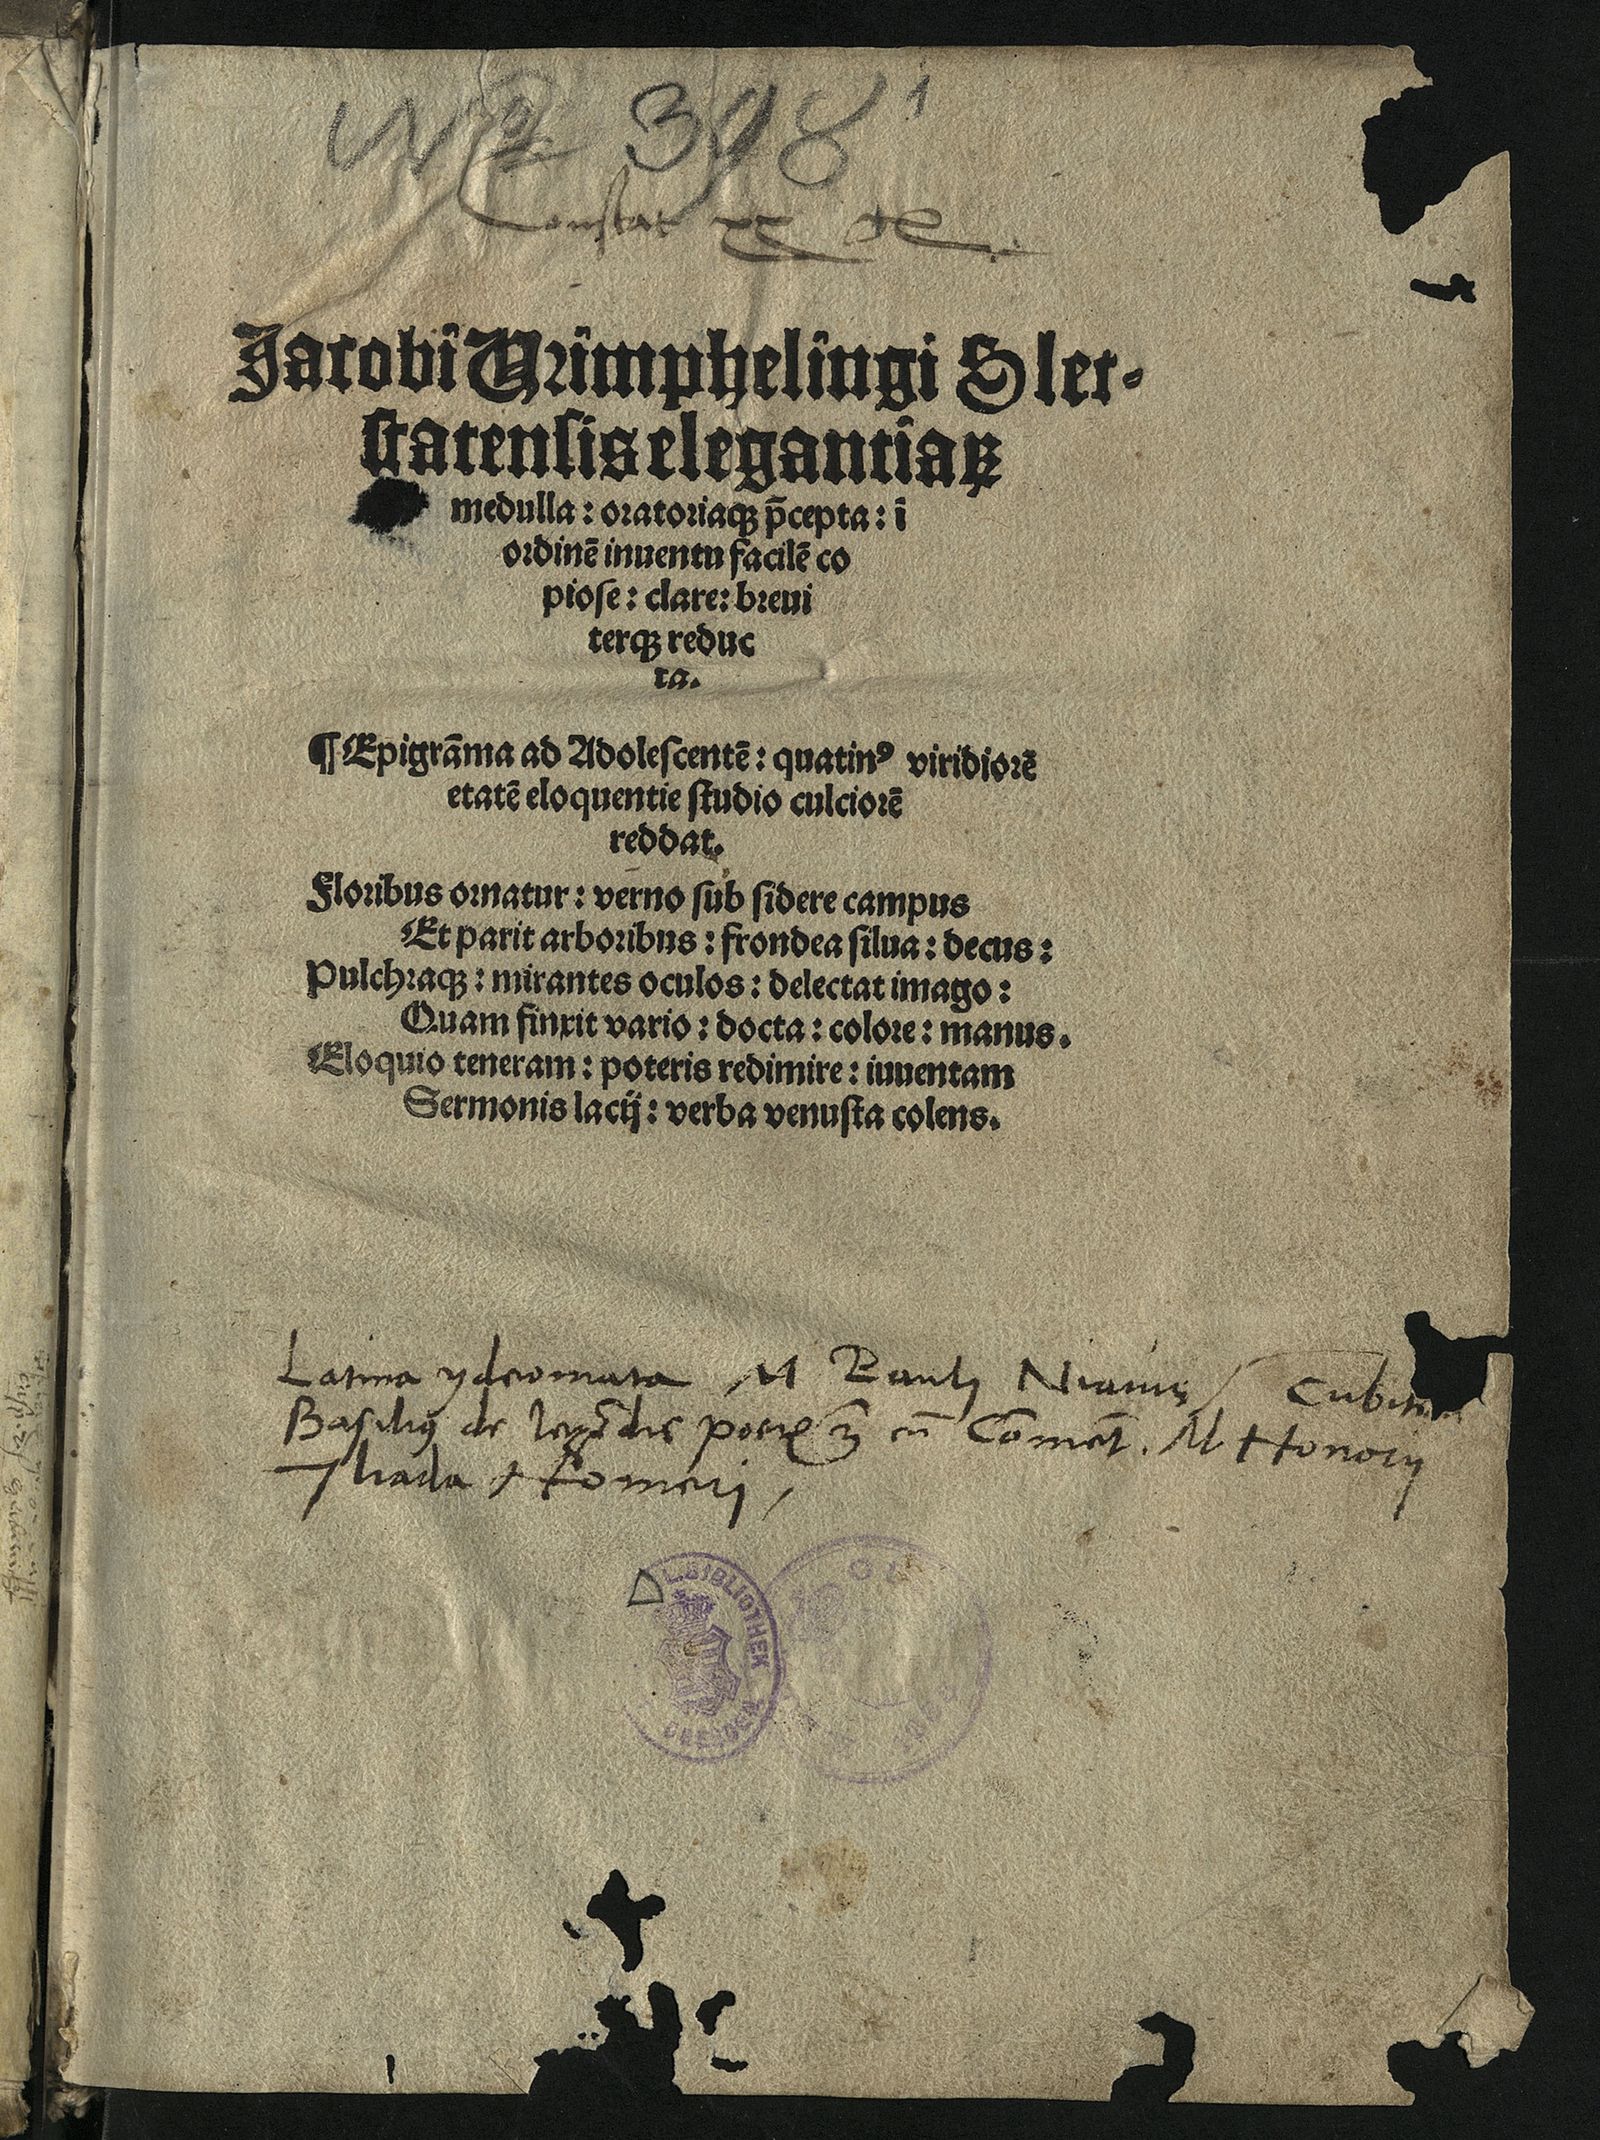 No 398 1
Constat
Jacobi Wimphelingi Slet-
statensis elegantiaꝝ
medulla: oratoriaqꝫ p̄cepta: ī
ordinē inuentu facilē co
piose: clare: breui
terqꝫ reduc
ta.
¶ Epigrāma ad Adolescentē: quatinꝰ viridiorē
etatē eloquentie studio culciorē
reddat.
Floribus ornatur: verno sub sidere campus
Et parit arboribus: frondea silua: decus:
Pulchraqꝫ: mirantes oculos: delectat imago:
Quam finxit vario: docta: colore: manus.
Eloquio teneram: poteris redimire: iuuentam
Sermonis lacij: verba venusta colens.
Latina ydeomata M Pauli Niauis
Basiliꝰ de cū Cōmēt. M Honorij
Iliada Homeri
L. BIBLIOTHEK
DRESDEN